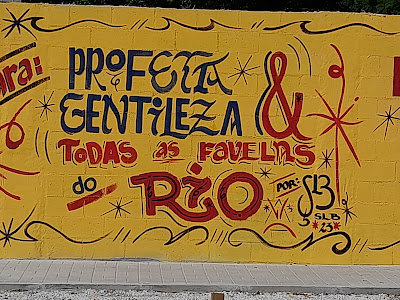 para:
PROFETA &
GENTILEZA
TODAS AS FAVELAS
do RIO
POR:
SLB
23